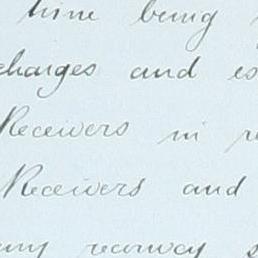 time being
charges and es
Receivers in re
Receivers and
any